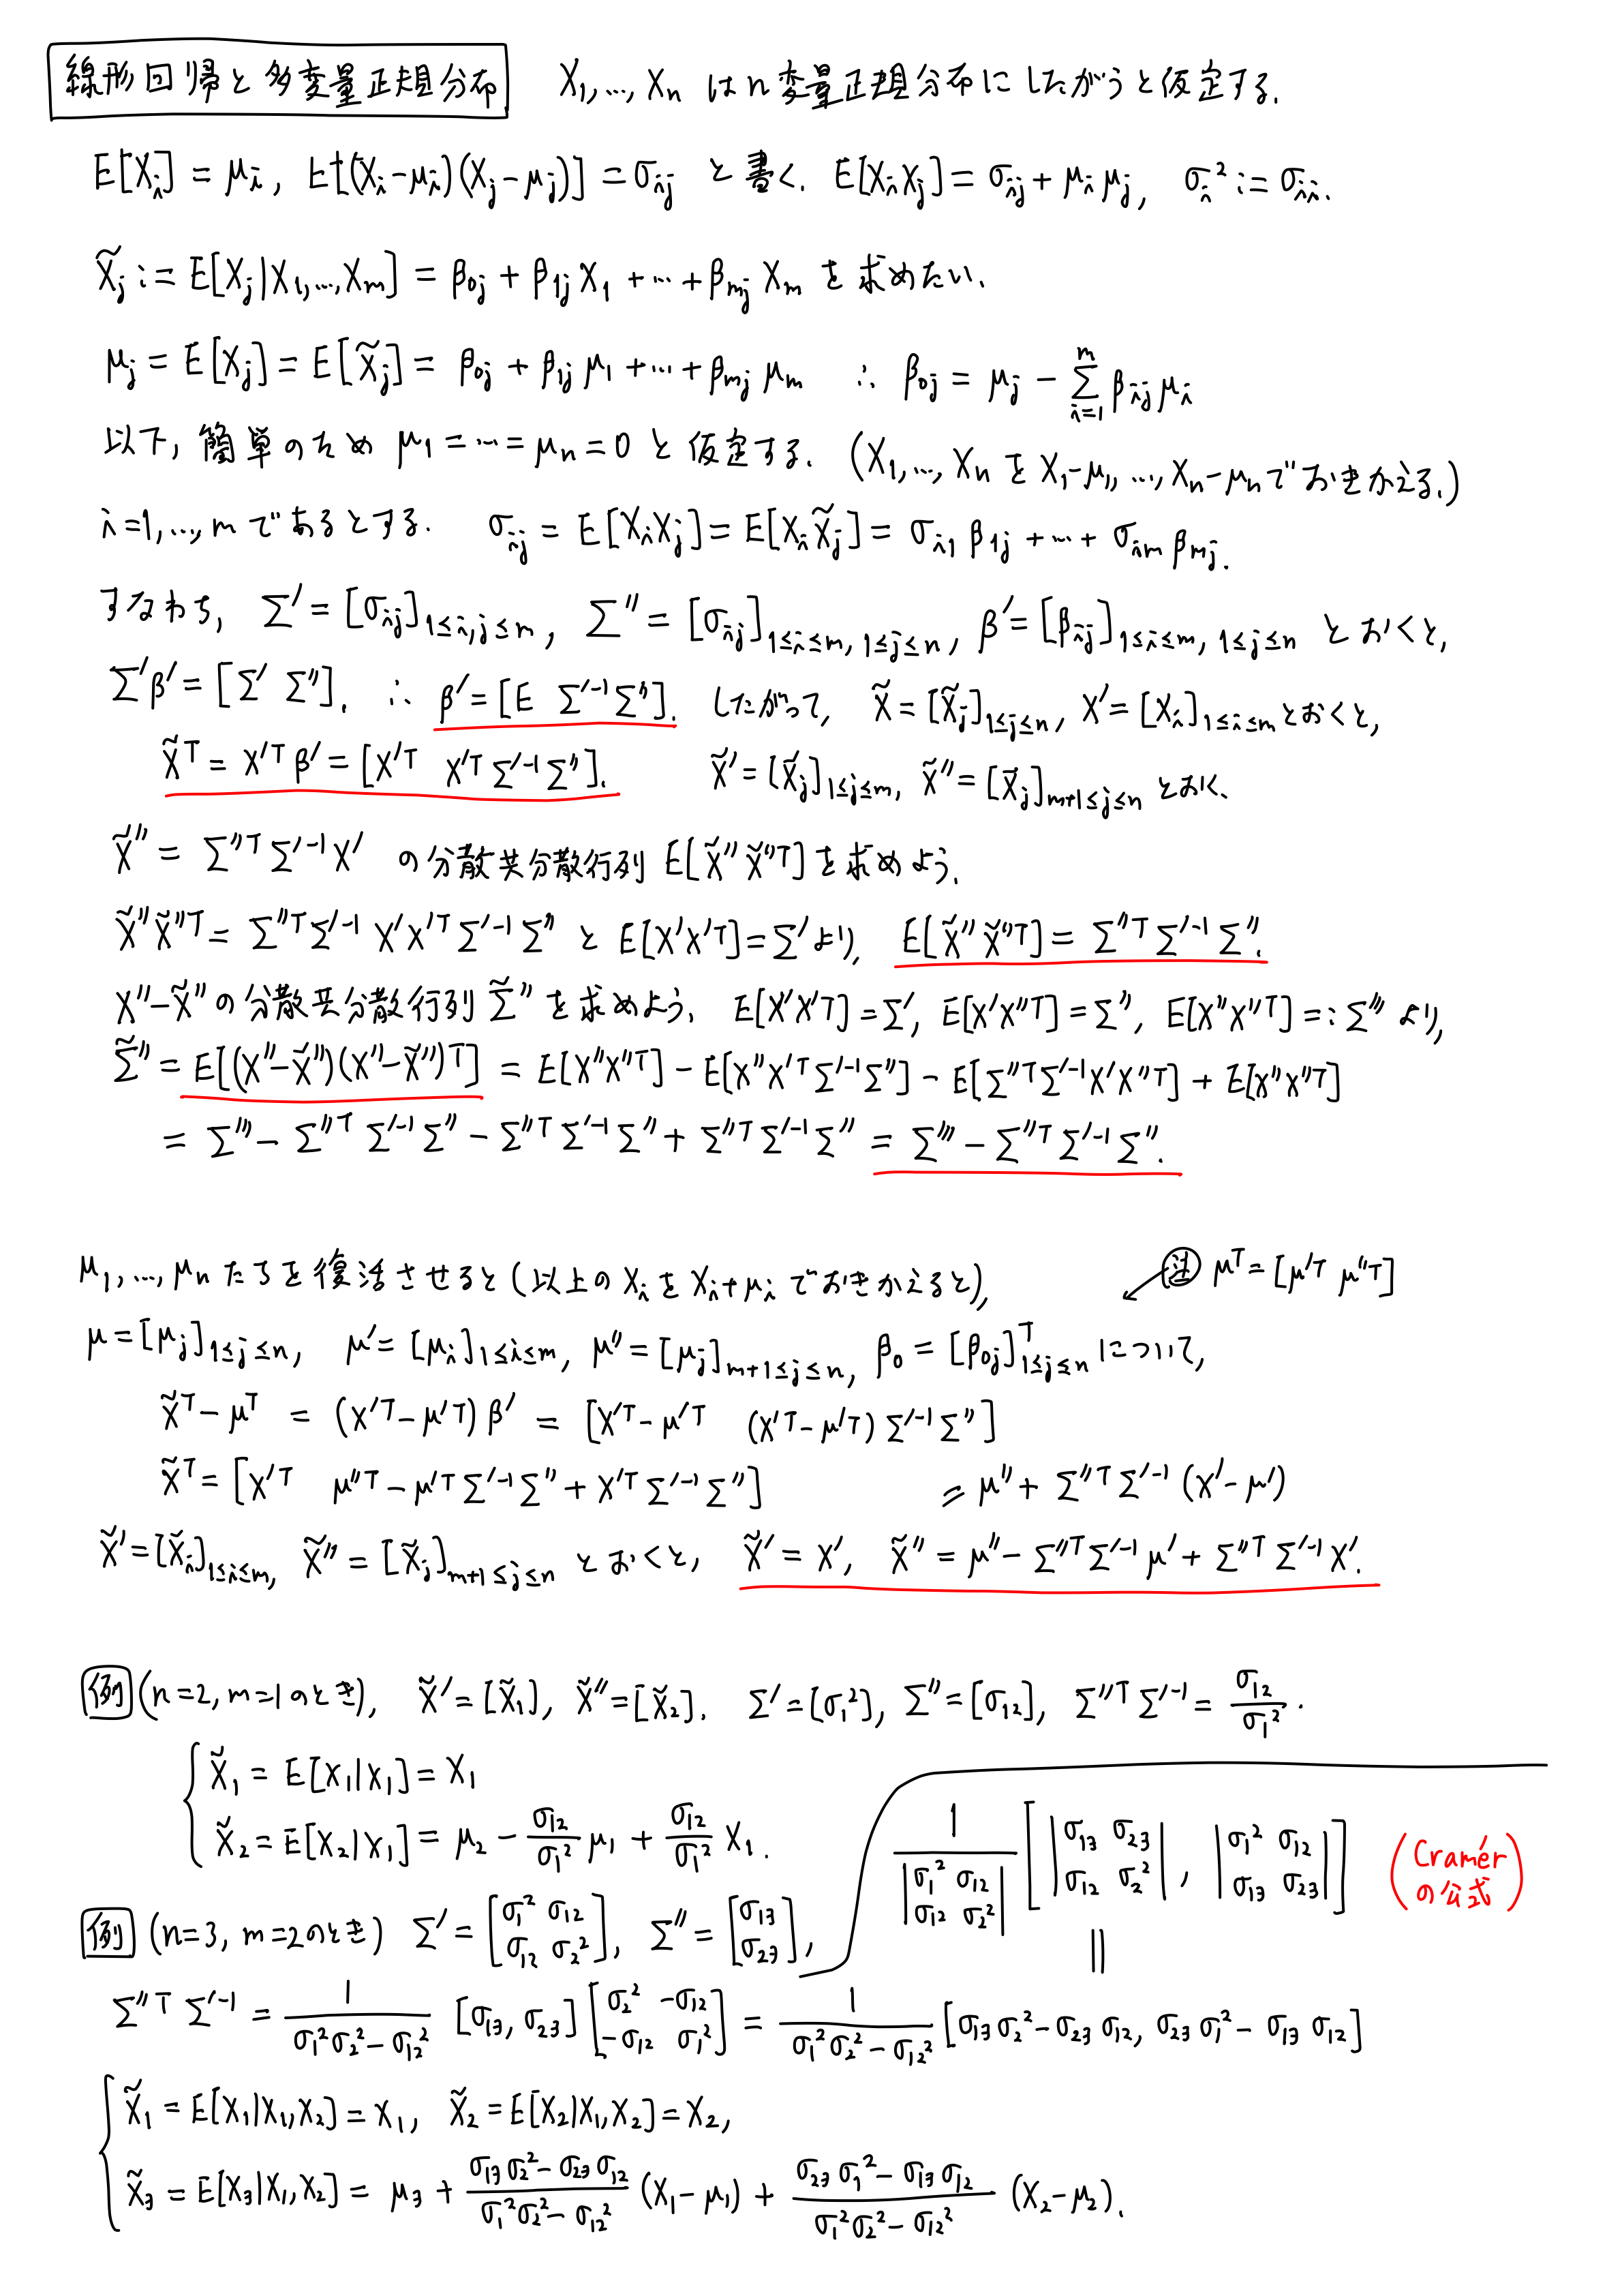 線形回帰と多変量正規分布 X₁,…,Xₙ はn変量正規分布にしたがうと仮定する.
E[Xᵢ] = μᵢ, E[(Xᵢ-μᵢ)(Xⱼ-μⱼ)] = σᵢⱼ と書く. E[XᵢXⱼ] = σᵢⱼ + μᵢμⱼ, σᵢ² := σᵢᵢ.
X̃ⱼ := E[Xⱼ|X₁,…,Xₘ] = β₀ⱼ + β₁ⱼX₁ + … + βₘⱼXₘ を求めたい.
μⱼ = E[Xⱼ] = E[X̃ⱼ] = β₀ⱼ + β₁ⱼμ₁ + … + βₘⱼμₘ ∴ β₀ⱼ = μⱼ - Σ_{i=1}^{m} βᵢⱼμᵢ
以下, 簡単のため μ₁ = … = μₙ = 0 と仮定する. (X₁,…,Xₙ を X₁-μ₁,…,Xₙ-μₙ でおきかえる.)
i=1,…,m であるとする. σᵢⱼ = E[XᵢXⱼ] = E[XᵢX̃ⱼ] = σᵢ₁β₁ⱼ + … + σᵢₘβₘⱼ.
すなわち, Σ′ = [σᵢⱼ]_{1≤i,j≤m}, Σ″ = [σᵢⱼ]_{1≤i≤m, 1≤j≤n}, β′ = [βᵢⱼ]_{1≤i≤m, 1≤j≤n} とおくと,
Σ′β′ = [Σ′ Σ″]. ∴ β′ = [E Σ′⁻¹Σ″]. したがって, X̃ = [X̃ⱼ]_{1≤j≤n}, X′ = [Xᵢ]_{1≤i≤m} とおくと,
X̃ᵀ = X′ᵀβ′ = [X′ᵀ X′ᵀΣ′⁻¹Σ″]. X̃′ = [X̃ⱼ]_{1≤j≤m}, X̃″ = [X̃ⱼ]_{m+1≤j≤n} とおく.
X̃″ = Σ″ᵀΣ′⁻¹X′ の分散共分散行列 E[X̃″X̃″ᵀ] を求めよう.
X̃″X̃″ᵀ = Σ″ᵀΣ′⁻¹X′X′ᵀΣ′⁻¹Σ″ と E[X′X′ᵀ] = Σ′ より, E[X̃″X̃″ᵀ] = Σ″ᵀΣ′⁻¹Σ″.
X″-X̃″ の分散共分散行列 Σ̃″ を求めよう. E[X′X′ᵀ] = Σ′, E[X′X″ᵀ] = Σ″, E[X″X″ᵀ] =: Σ‴ より,
Σ̃″ = E[(X″-X̃″)(X″-X̃″)ᵀ] = E[X″X″ᵀ] - E[X″X′ᵀΣ′⁻¹Σ″] - E[Σ″ᵀΣ′⁻¹X′X″ᵀ] + E[X̃″X̃″ᵀ]
= Σ‴ - Σ″ᵀΣ′⁻¹Σ″ - Σ″ᵀΣ′⁻¹Σ″ + Σ″ᵀΣ′⁻¹Σ″ = Σ‴ - Σ″ᵀΣ′⁻¹Σ″.
μ₁,…,μₙ たちを復活させると (以上の Xᵢ を Xᵢ+μᵢ でおきかえると), ㊟ μᵀ = [μ′ᵀ μ″ᵀ]
μ = [μⱼ]_{1≤j≤n}, μ′ = [μᵢ]_{1≤i≤m}, μ″ = [μⱼ]_{m+1≤j≤n}, β₀ = [β₀ⱼ]ᵀ_{1≤j≤n} について,
X̃ᵀ - μᵀ = (X′ᵀ-μ′ᵀ)β′ = [X′ᵀ-μ′ᵀ (X′ᵀ-μ′ᵀ)Σ′⁻¹Σ″]
X̃ᵀ = [X′ᵀ μ″ᵀ - μ′ᵀΣ′⁻¹Σ″ + X′ᵀΣ′⁻¹Σ″] = μ″ + Σ″ᵀΣ′⁻¹(X′-μ′)
X̃′ = [X̃ᵢ]_{1≤i≤m}, X̃″ = [X̃ⱼ]_{m+1≤j≤n} とおくと, X̃′ = X′, X̃″ = μ″ - Σ″ᵀΣ′⁻¹μ′ + Σ″ᵀΣ′⁻¹X′.
例 (n=2, m=1のとき), X̃′ = [X̃₁], X̃″ = [X̃₂]. Σ′ = [σ₁²], Σ″ = [σ₁₂], Σ″ᵀΣ′⁻¹ = σ₁₂/σ₁².
X̃₁ = E[X₁|X₁] = X₁
X̃₂ = E[X₂|X₁] = μ₂ - (σ₁₂/σ₁²)μ₁ + (σ₁₂/σ₁²)X₁.
1/|σ₁² σ₁₂; σ₁₂ σ₂²| [ |σ₁₃ σ₂₃; σ₁₂ σ₂²|, |σ₁² σ₁₂; σ₁₃ σ₂₃| ] (Cramérの公式)
例 (n=3, m=2のとき) Σ′ = [σ₁² σ₁₂; σ₁₂ σ₂²], Σ″ = [σ₁₃; σ₂₃], ||
Σ″ᵀΣ′⁻¹ = 1/(σ₁²σ₂²-σ₁₂²) [σ₁₃, σ₂₃] [σ₂² -σ₁₂; -σ₁₂ σ₁²] = 1/(σ₁²σ₂²-σ₁₂²) [σ₁₃σ₂²-σ₂₃σ₁₂, σ₂₃σ₁²-σ₁₃σ₁₂]
X̃₁ = E[X₁|X₁,X₂] = X₁, X̃₂ = E[X₂|X₁,X₂] = X₂,
X̃₃ = E[X₃|X₁,X₂] = μ₃ + (σ₁₃σ₂²-σ₂₃σ₁₂)/(σ₁²σ₂²-σ₁₂²) (X₁-μ₁) + (σ₂₃σ₁²-σ₁₃σ₁₂)/(σ₁²σ₂²-σ₁₂²) (X₂-μ₂).